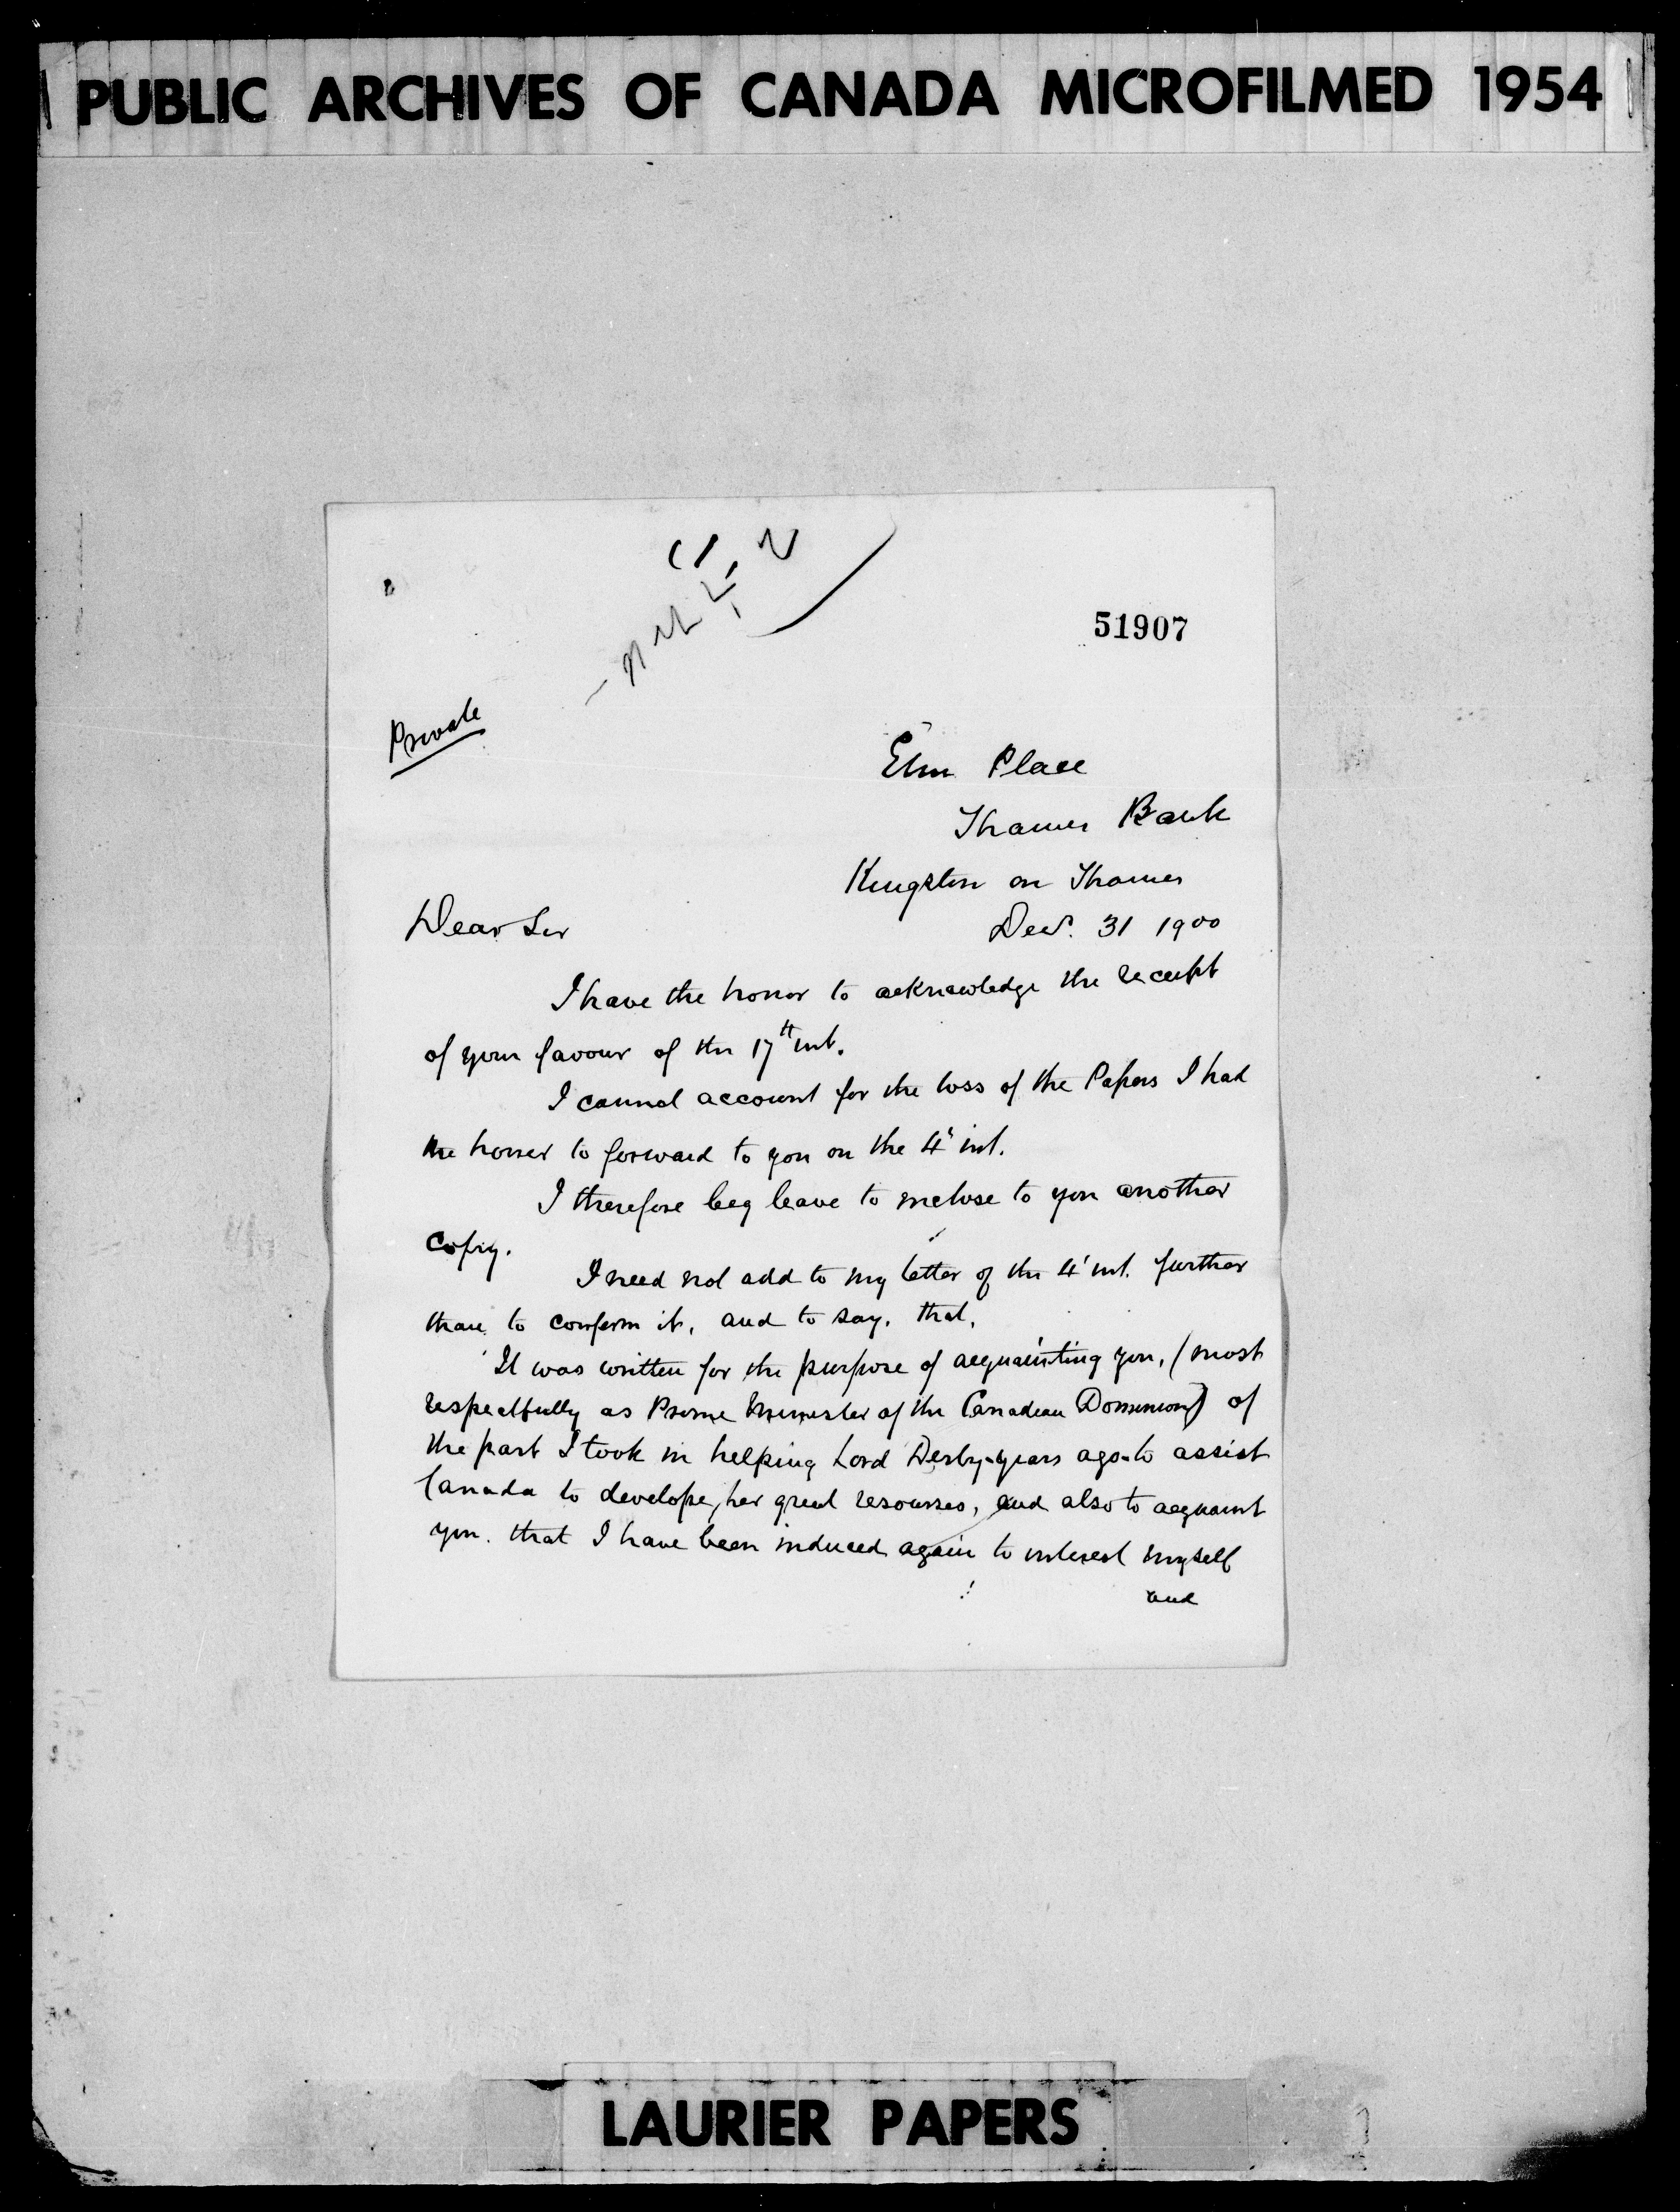 PUBLIC ARCHIVES OF CANADA MICROFILMED 1954
51907
Private
Elm Place
Thames Bank
Kingston on Thames
Dear Sir
Decr. 31 1900
I have the honor to acknowledge the receipt
of your favour of the 17th inst.
I cannot account for the loss of the Papers I had
the honor to forward to you on the 4th inst.
I therefore beg leave to enclose to you another
Copy.
I need not add to my letter of the 4th inst. further
than to confirm it, and to say, that,
It was written for the purpose of acquainting you, (most
respectfully as Prime Minister of the Canadian Dominion) of
the part I took in helping Lord Derby-years ago-to assist
Canada to develope, her great resourses, and also to acquaint
you. that I have been induced again to interest myself
and
LAURIER PAPERS